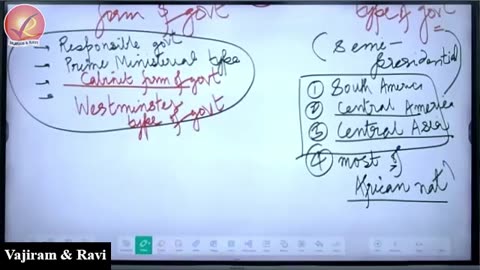 form & govt
→ Responsible govt
→ Prime Ministerial type
→ Cabinet form & govt
→ Westminster
type of govt
type of govt
(Seme-
Presidential
① South America
② Central America
③ Central Asia
④ most of
African nat
VAJIRAM & RAVI
Vajiram & Ravi